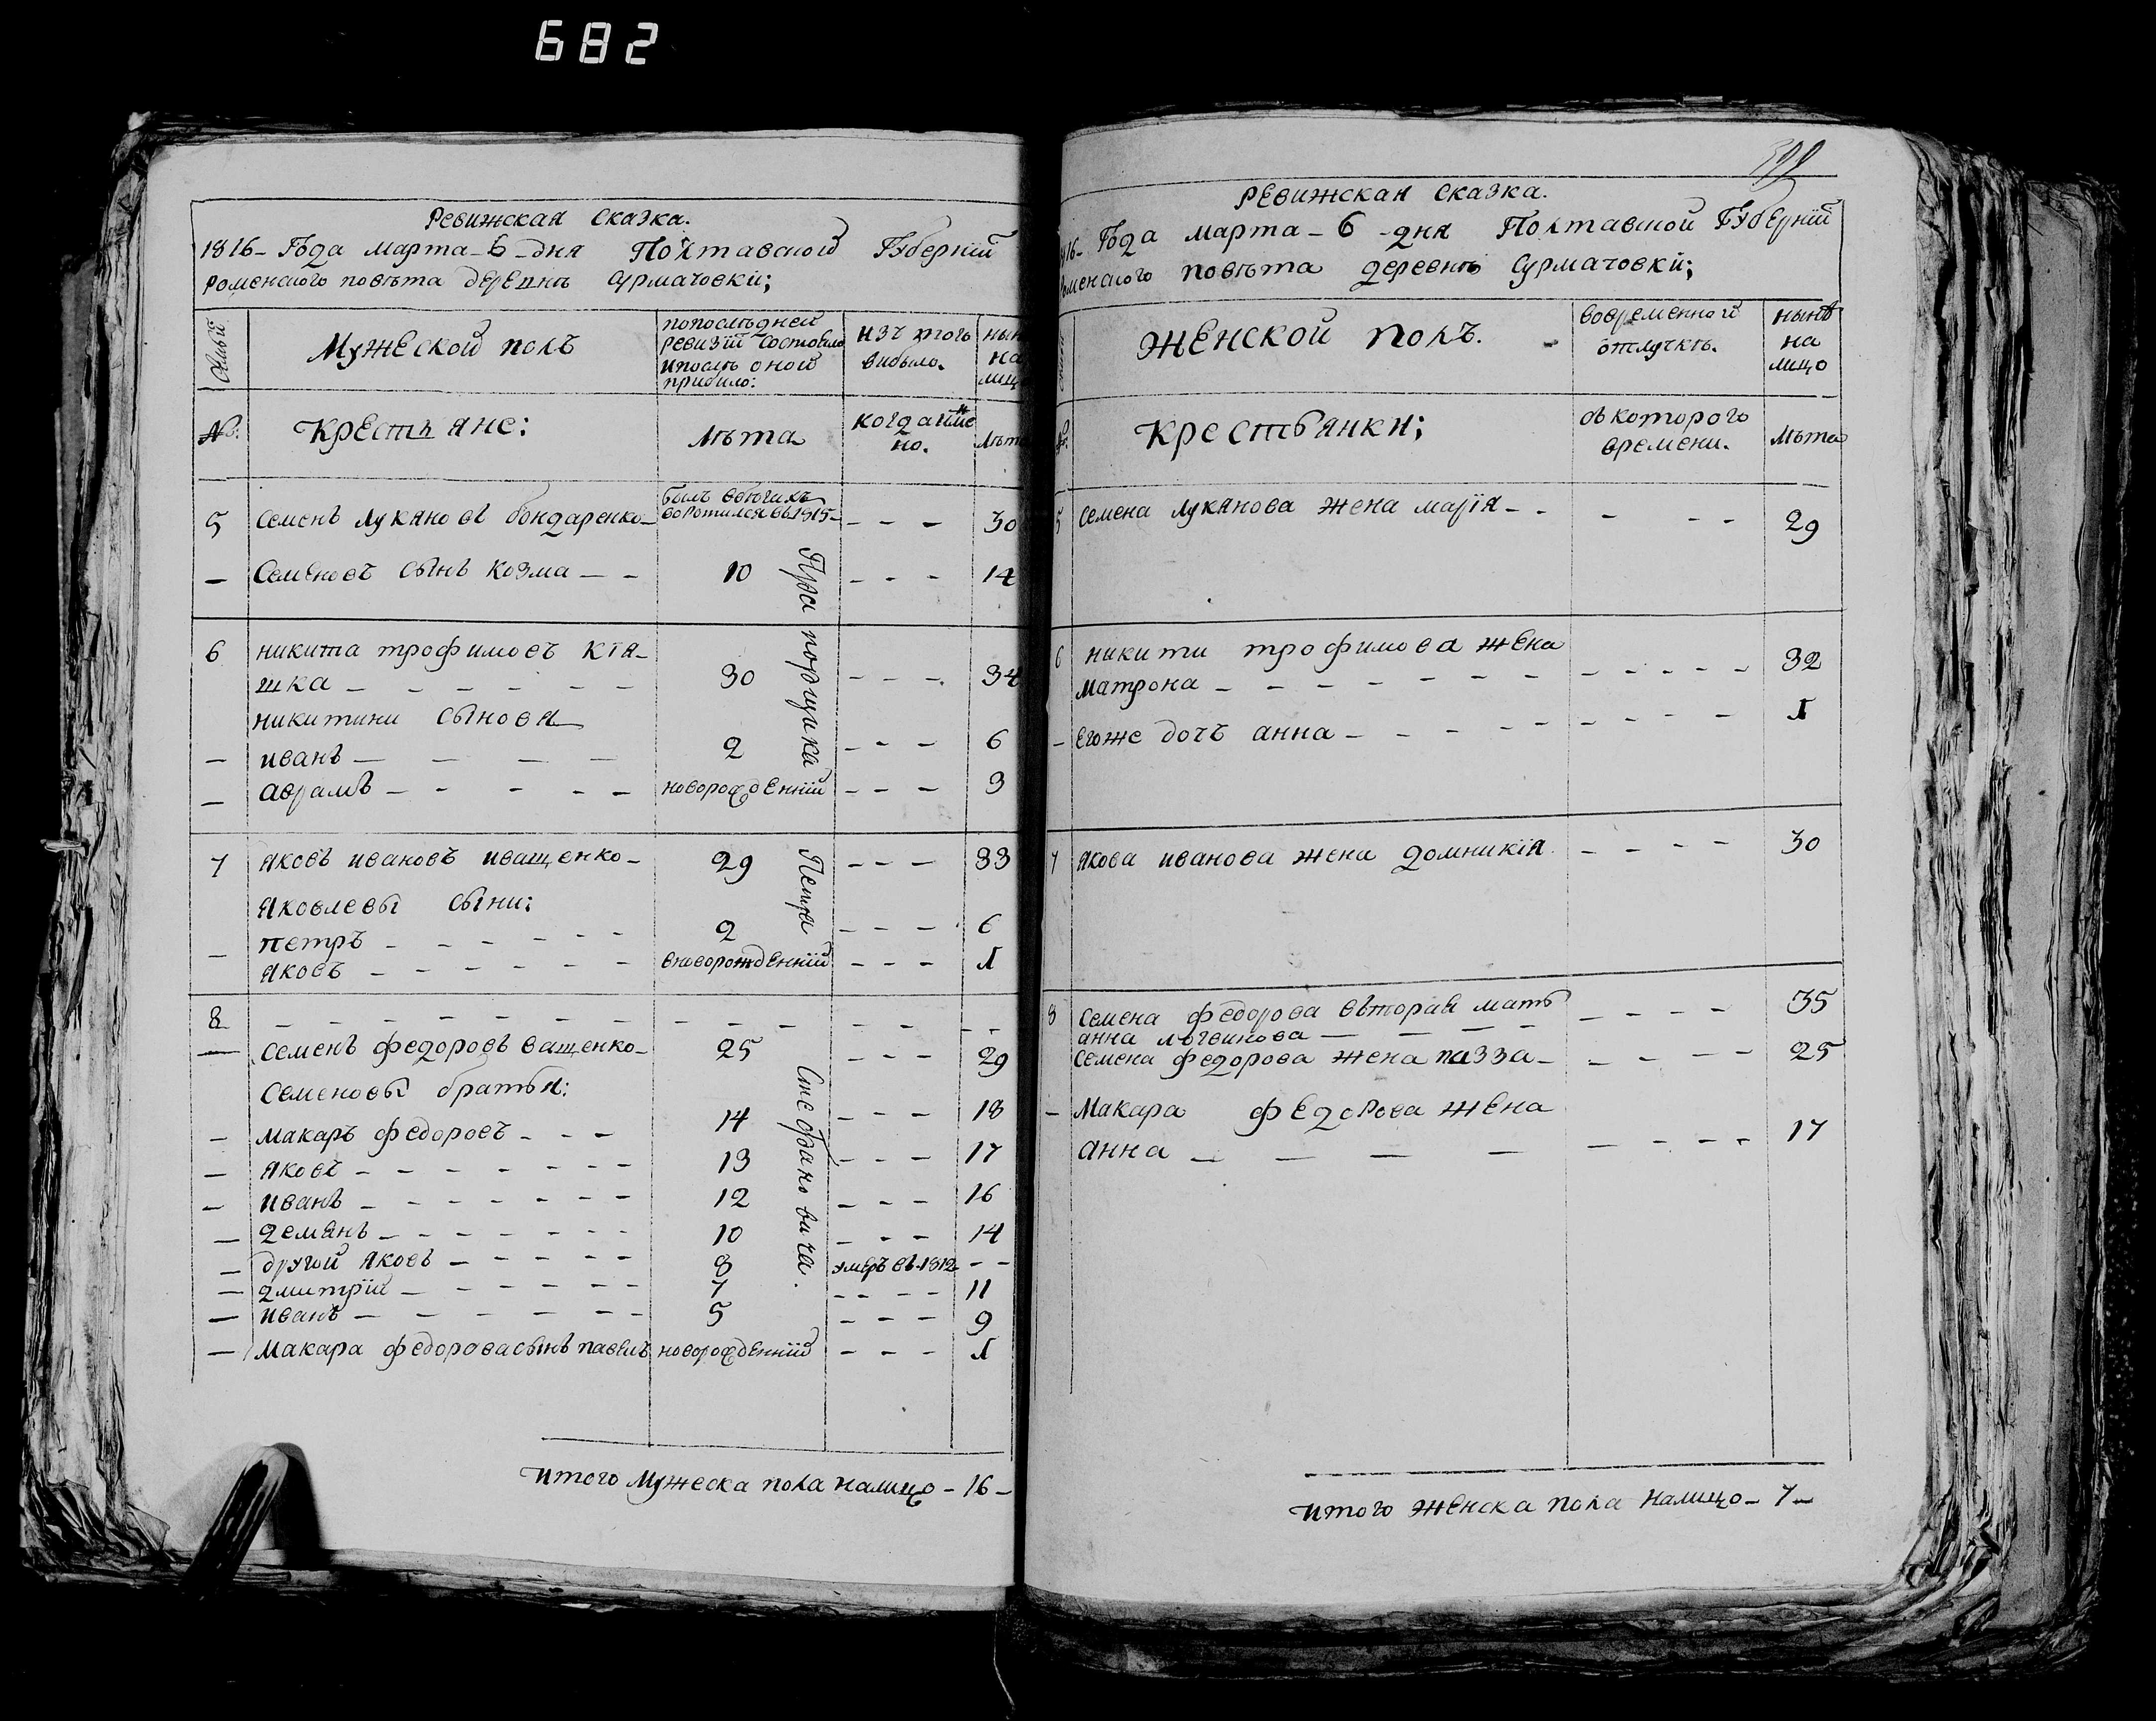 682
Ревижская сказка.
1816- Года марта-6-дня Полтавской Губернїи
роменского повѣта деревнѣ Сурмачовкй;
Мужеской полъ
попослѣдней
ревизїй состояло
ипослѣ оной
прибило:
изъ того
вибыло.
нын
на
лиц
№:
Крестьяне:
лѣта
когда
но.
лѣта
5 Семенъ Лукяновъ бондаренко- былъ вбѣгахъ
воротился въ1815- - - - 30
- Семеновъ сынъ козма - - 10 - - - 14
6 никита трофимовъ кїя-
шка - - - - - - 30 - - - 34
никитини сыновя
- иванъ - - - - 2 - - - 6
- аврамъ - - - - - новорожденнїй - - - 3
7 яковъ ивановъ иващенко- 29 - - - 33
яковлевы сыни:
- петръ - - - - - - 2 - - - 6
яковъ - - - - - - вноворожденнїй - - - 1
8 - - - - - - - - - - - - - -
- Семенъ федоровъ ващенко- 25 - - - 29
Семеновы братья:
- макаръ федоровъ - - - 14 - - - 18
- яковъ - - - - - - - 13 - - - 17
- иванъ - - - - - - 12 - - - 16
- демянъ - - - - - - 10 - - - 14
- другой яковъ - - - - - 8 умеръ въ-1812- - -
- дмитрїй - - - - - - 7 - - - - 11
- иванъ - - - - - - 5 - - - 9
- Макара федорова сынъ павелъ новорожденнїй - - - 1
Прапорщика
Петра
Стефановича.
итого Мужеска пола налицо - 16 -
Ревижская сказка.
1816- Года марта-6-дня Полтавской Губернїй
роменского повѣта деревнѣ Сурмачовкй;
Женской полъ.
вовременной
отлучкѣ.
нынѣ
на
лицо
№:
Крестьянки;
съ которого
времени.
лѣта
5 Семена лукянова жена марїя - - - - - 29
6 никити трофимова жена
матрона - - - - - - - - - - - - 32
- егоже дочъ анна - - - - - - - - - - 1
7 якова иванова жена домникїя - - - - 30
8 Семена федорова вьторая мать - - - - 35
анна логвинова - - - -
Семена федорова жена пазза- - - - - 25
- Макара федорова жена
анна - - - - - - - - 17
итого женска пола налицо- 7-